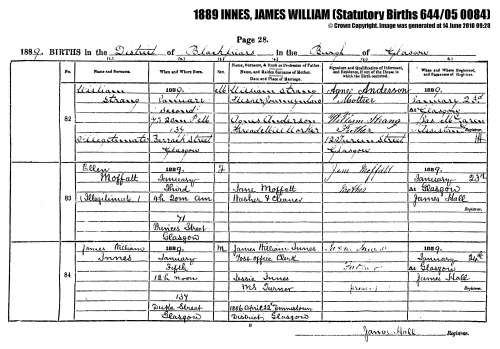 1889 INNES, JAMES WILLIAM (Statutory Births 644/05 0084)
© Crown Copyright. Image was generated at 14 June 2010 09:28
Page 28.
1889. BIRTHS in the District of Blackfriars in the Burgh of Glasgow
No. Name and Surname. When and Where Born. Sex. Name, Surname, & Rank or Profession of Father. Name, and Maiden Surname of Mother. Date and Place of Marriage. Signature and Qualification of Informant, and Residence, if out of the House in which the Birth occurred. When and Where Registered, and Signature of Registrar.
82
William
Strang
Illegitimate
1889.
January
Second
134
Street
Glasgow
M
William Strang
Agnes Anderson
Worker
Agnes Anderson
Mother
William Strang
Father
Street
Glasgow
1889.
January 23d
at Glasgow
83
Ellen
Moffatt
(Illegitimate)
1889.
January
Third
4h 20m AM
71
Princes Street
Glasgow
F
Jane Moffatt
Washer & Cleaner
Jane Moffatt
Mother
1889.
January 23d
at Glasgow
James Hall
Registrar.
84
James William
Innes
1889.
January
Fifth
12h noon
134
Duke Street
Glasgow
M
James William Innes
Post Office Clerk
Jessie Innes
M.S. Turner
1886 April 22d Dennistoun
District, Glasgow
Innes
Father
(present)
1889.
January 24th
at Glasgow
James Hall
Registrar.
James Hall
Registrar.